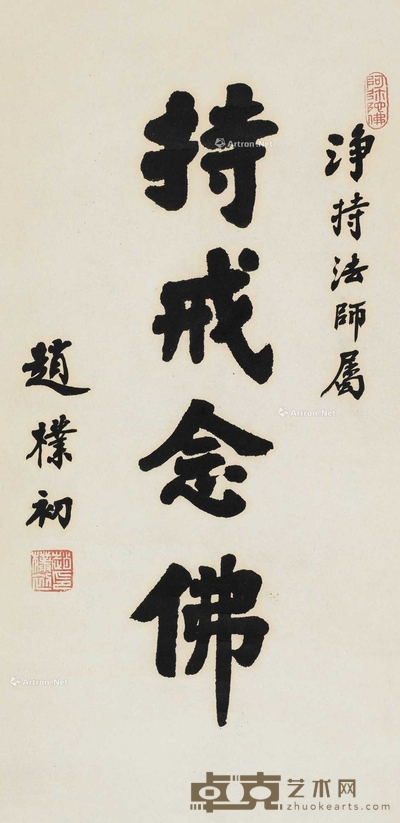 阿弥陀佛
淨持法師属
持戒念佛
趙樸初
Artron.Net
Artron.Net
Artron.Net
Artron.Net
卓克艺术网
zhuokearts.com